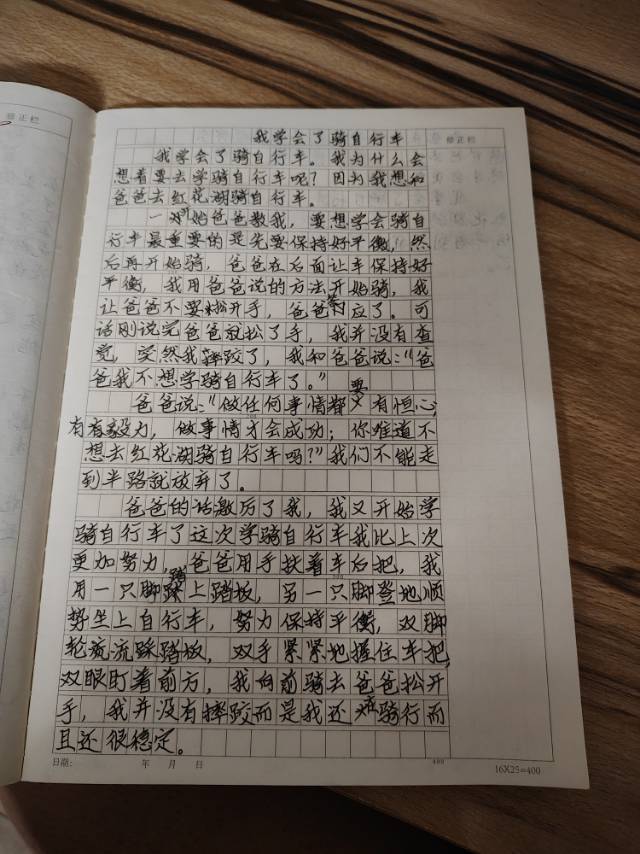 修正栏
我学会了骑自行车
修正栏
我学会了骑自行车。我为什么会
想着要去学骑自行车呢?因为我想和
爸爸去红花湖骑自行车。
一开始爸爸教我,要想学会骑自
行车最重要的是先要保持好平衡,然
后再开始骑,爸爸在后面让车保持好
平衡,我用爸爸说的方法开始骑,我
让爸爸不要松开手,爸爸答应了。可
话刚说完爸爸就松了手,我并没有查
觉,突然我摔跤了,我和爸爸说:“爸
爸我不想学骑自行车了。”
爸爸说:“做任何事情都要有恒心,
有有毅力,做事情才会成功;你难道不
想去红花湖骑自行车吗?”我们不能走
到半路就放弃了。
爸爸的话激历了我,我又开始学
骑自行车了这次学骑自行车我比上次
更加努力,爸爸用手扶着车后把,我
用一只脚踏上踏板,另一只脚登地顺
势坐上自行车,努力保持平衡,双脚
轮流流踩踏板,双手紧紧地握住车把,
双眼盯着前方,我向前骑去爸爸松开
手,我并没有摔跤而是我还在骑行而
且还很稳定。
日期: 年 月 日
400
16X25=400